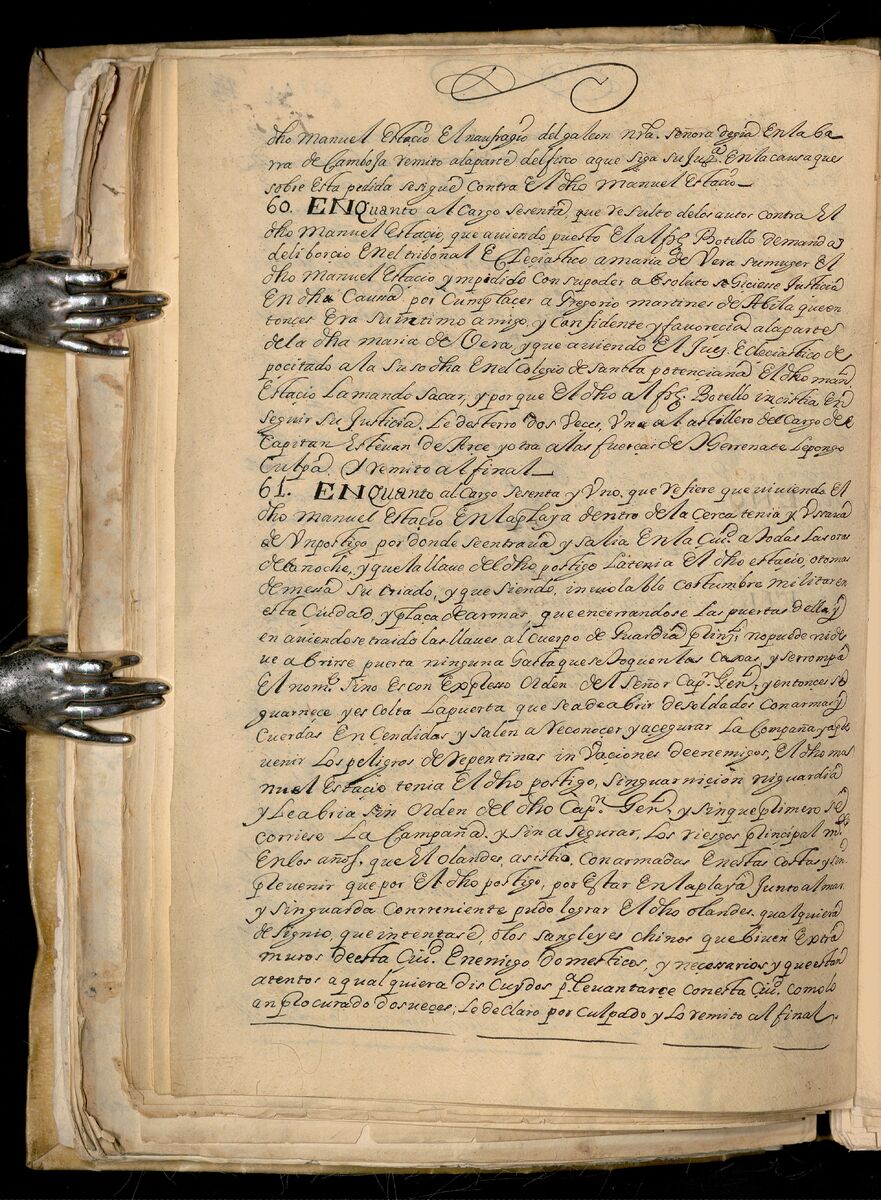 dho Manuel Estacio El naufragio del galeon nrã. señora degiã En la ba
rra de Camboja remito alaparte del fisco aque siga su Jusª. En la causa ques
sobre Esta pedida sesigue contra El dho Manuel Estacio
60. ENQuanto al Cargo Sesenta, que resulto delos autos contra El
dho Manuel Estacio, que aviendo puesto El alfz Botello demanda
deliborcio En el tribonal Ecleciastico amaria de Vera sumuger El
dho Manuel Estacio ympidido Con supoder absoluto se Giciese Justicia
En dha Causa por Cumplacer a Gregorio martines de Abila que en
tonces Era su intimo amigo, y Confidente y favorecia alapartes
de la dha maria de Vera, y que aviendo El Juez Ecleciastico de
pocitado a la suso dha En el Colegio de Santta potenciana El dho manl.
Estacio La mando Sacar, y por que El dho alfz Botello incistia En
seguir su Justicia, Le desterro dos Veces, Una al astillero del Cargo del
Capitan Estevan de Arce y otra a las fuerças de Herrenate Lepongo
Culpa. Y remito al final
61. ENQuanto al Cargo Sesenta y Vno, que refiere que viviendo El
dho Manuel Estacio En laplaya dentro de la Cerca tenia y Vsava
de Vn postigo por donde se entrava y salia En la Ciud. a todas Las oras
de la noche, y que la llave del dho postigo La tenia El dho estacio, o tomas
de mesa su criado, y que siendo, inviolablo costumbre militar en
esta Ciudad, y plaça de armas que encerrandose Las puertas della y
en aviendose traido las llaves al Cuerpo de Guardia prinl; nopuede nide
ve abrirse puerta ninguna Gasta que se toquen las Caxas, y se rrompa
El nome. Sino Es con Expresso orden del Señor Capn. Genl, y entonces se
guarneçe y es Colta La puerta que sea de abrir de soldados Con armas y
Cuerdas En Cendidas y salen a reconocer y acegurar La Compaña y apre
uenir Los peligros de repentinas in Vaciones de enemigos, El dho ma
nuel Estacio tenia El dho postigo, Singuarnicion niguardia
y Le abria sin orden del dho Capn. Genl, y sin que primero se
corriese La Campaña, y sin a Segurar, Los riesgos principal mte
En los años, que El olandes, asistio, con armadas En estas Costas y sin
preuenir que por El dho postigo, por Estar En laplaya Junto al mar
y Sin guarda Conrreniente pudo lograr El dho olandes qualquiera
de signio, que intentase, olos sangleyes chinos que biuen Extra
muros de esta Ciud. Enemigo domesticos, y necessarios y que estan
atentos a qual quiera dis Cuydos pa. levantarce Con esta Ciud. Como lo
an procurado dos veces; Le declaro por culpado y Lo remito al final.